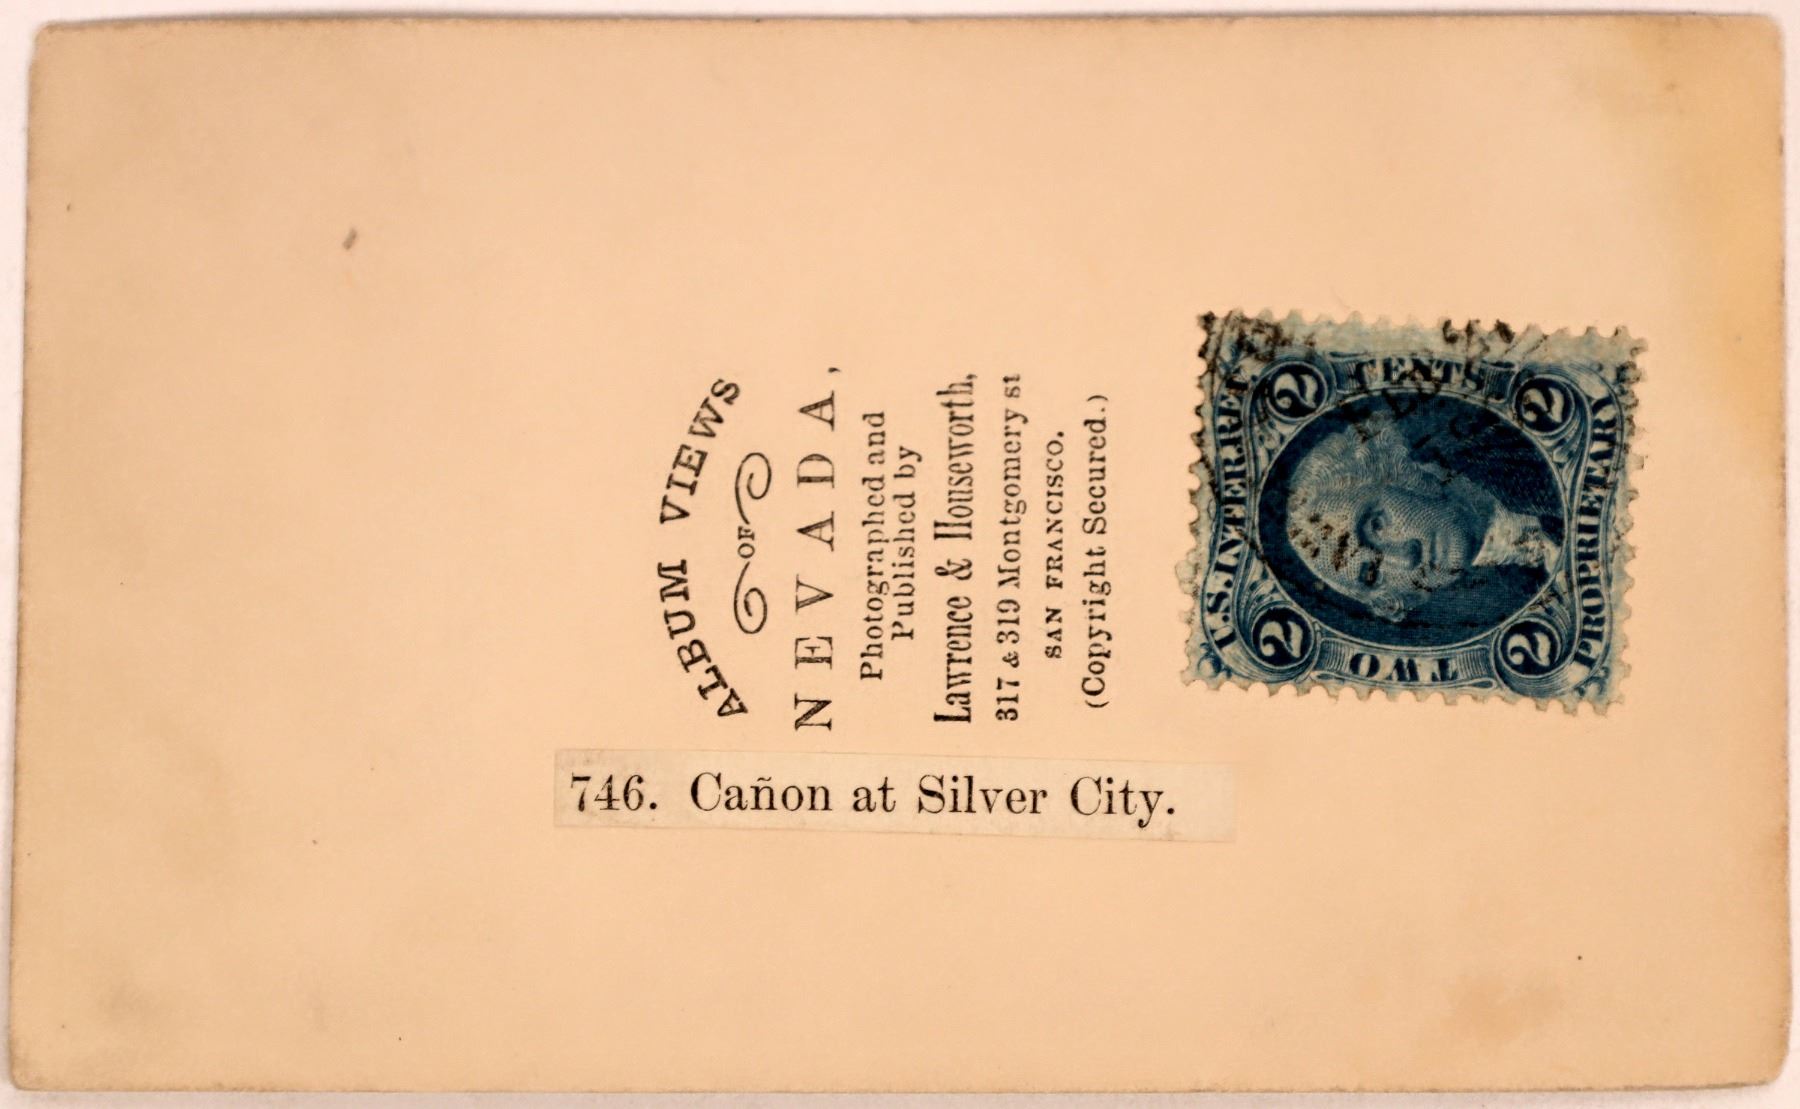 ALBUM VIEWS
OF
NEVADA,
Photographed and
Published by
Lawrence & Houseworth,
317 & 319 Montgomery st
SAN FRANCISCO.
(Copyright Secured.)
746. Cañon at Silver City.
U.S. INTER. REV.
2 CENTS 2
PROPRIETARY
2 TWO 2